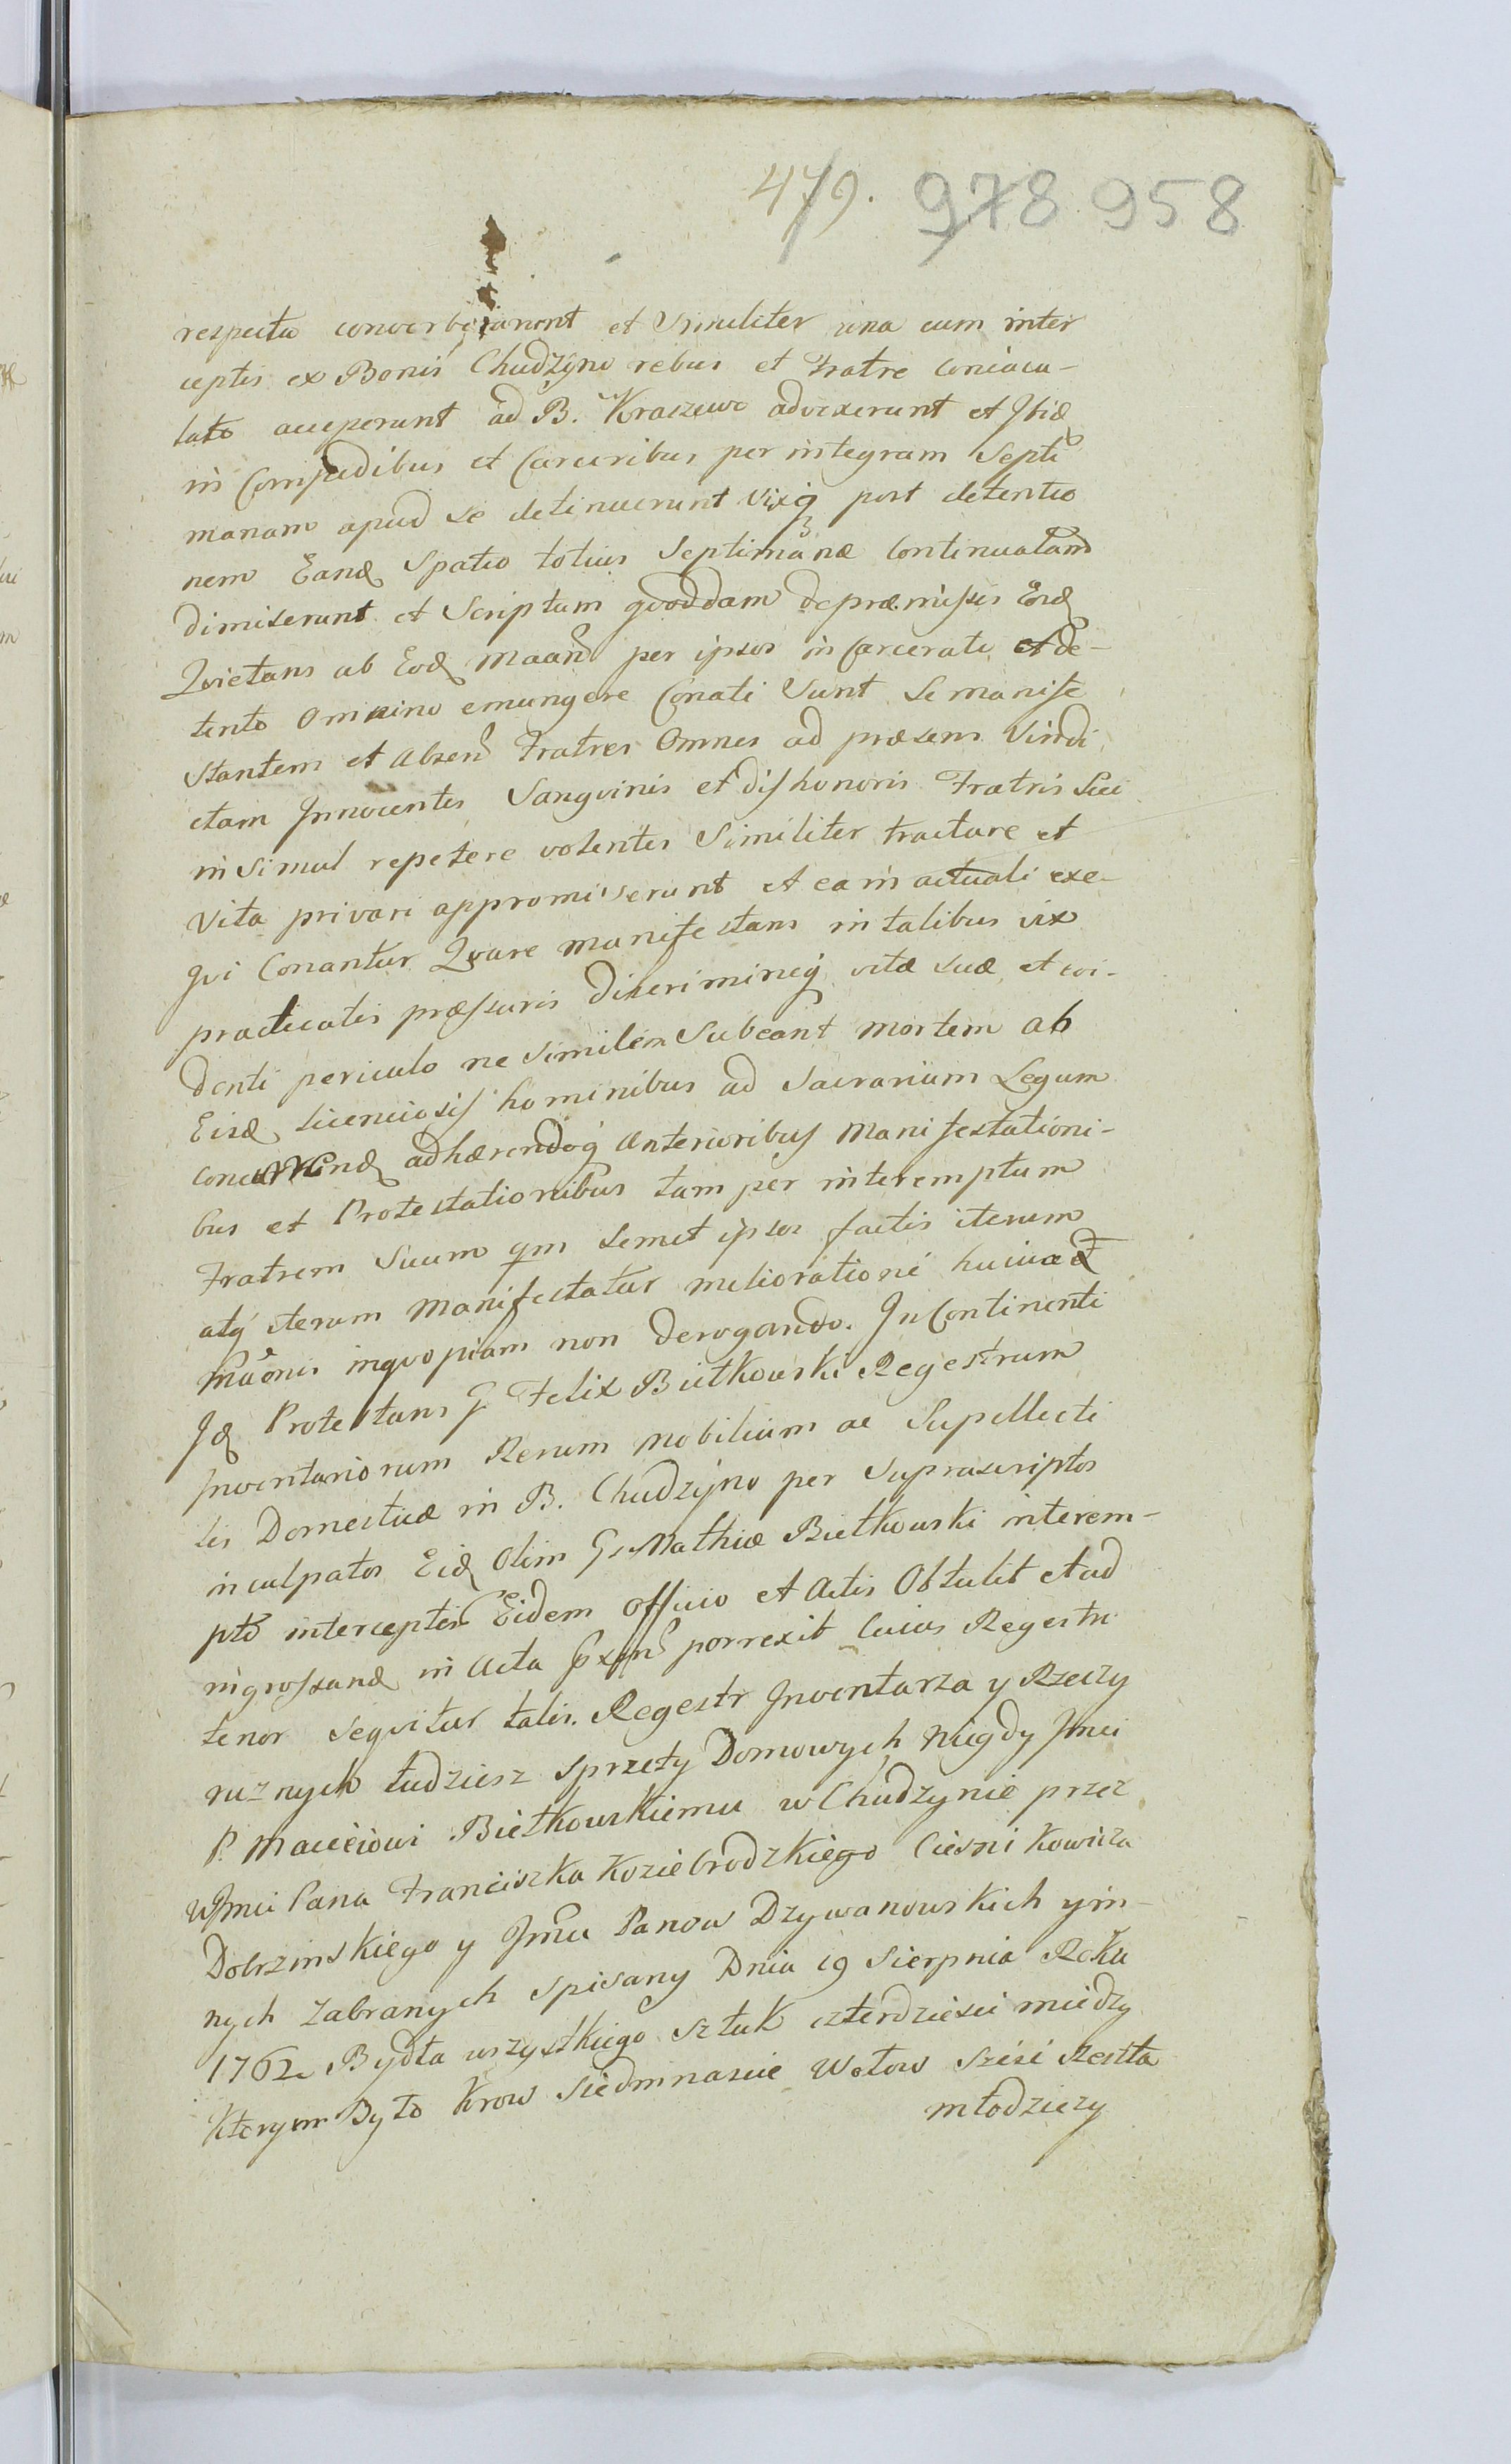 479. 978 958
respectu converberarunt et Similiter una cum inter
ceptis ex Bonis Chudzyno rebus et Fratre Coniacu-
lato acceperunt ad B. Kraszewo advexerunt et Ibid
in Compedibus et Carceribus per integram Septi
manam apud se detinuerunt Vixq post detentio
nem Eand Spatio totius Septimanæ Continuatam
dimiserunt et Scriptum qvoddam de præmissis Eosd
Qvietans ab Eod Maan per ipsos in carcerato et de-
tento Omnino emungere Conati Sunt Se manife
stantem et Absen Fratres Omnes ad præsens Vindi
ctam Innocentis Sangvinis et dishonoris Fratris Sui
insimul repetere volentes Similiter tractare et
Vita privari appromiserunt et ea in actuali exe-
qvi Conantur Qvare Manifestans in talibus vix
practicatis præssuris discrimineq vitæ suæ et evi-
denti periculo ne similem Subeant mortem ab
Eisd licenciosis hominibus ad Sacrarium Legum
concurrend adhærendoq anterioribus Manifestationi-
bus et Protestationibus tam per interemptum
Fratrem Suum qm Semet ipsos factis iterum
atq iterum Manifestatur meliorationi huius
inqvopiam non derogando. In Continenti
Id Protestans G Felix Bietkowski Regestrum
Inventariorum Rerum mobilium ac Supellecti
lis Domesticæ in B. Chudzyno per Suprascriptos
inculpatos Eid Olim Gs Mathiæ Bietkowski interem-
pto interceptis Eidem Officio et Actis Obtulit et ad
ingrossand in Acta porrexit Cuius Regestri
tenor Seqvitur talis. Regestr Inwentarza y Rzeczy
ruznych tudziesz Sprzety Domowych Niegdy Jmci
P. Macieiowi Bietkowskiemu w Chudzynie przez
WJmci Pana Franciszka Koziebrodzkiego Ciesnikowicza
Dobrzinskiego y Jmci Panow Dzywanowskich y in-
nych Zabranych Spisany Dnia 19 Sierpnia Roku
1762 Bydła wszystkiego Sztuk czterdziesci miedzy
Kterym Było Krow Siedmnascie Wołow Szesc Reszta
młodziezy